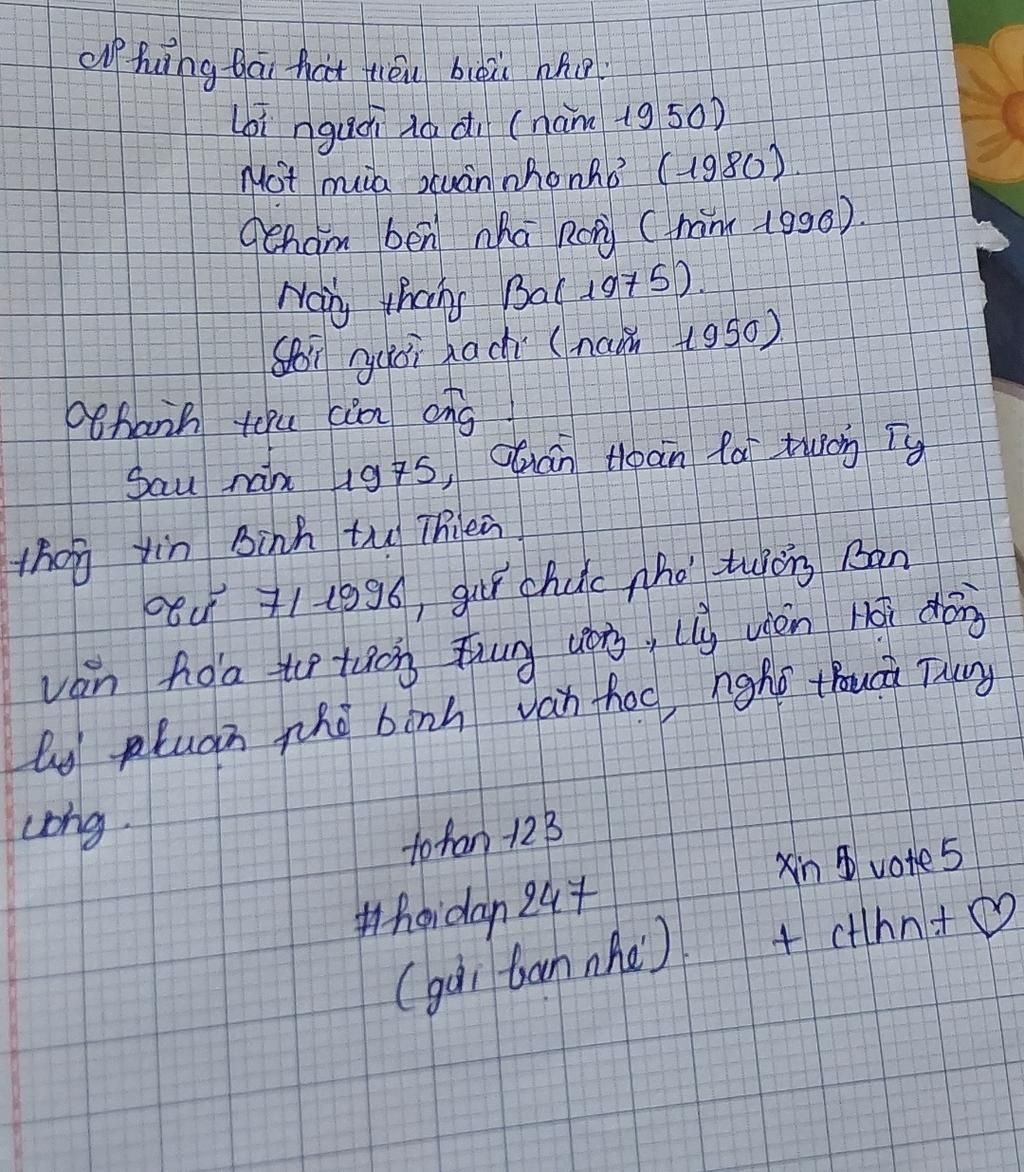 Những bài hát tiêu biểu như:
Lời người ra đi (năm 1950)
Một mùa xuân nho nhỏ (1980).
Thăm bến nhà Rồng (năm 1990).
Nắng tháng Ba (1975).
Lời người ra đi (năm 1950)
Thành tựu của ông
Sau năm 1975, Trần Hoàn là trưởng Ty
thông tin Bình trị Thiên.
Từ 7/1996, giữ chức phó trưởng Ban
văn hóa tư tưởng Trung ương, Ủy viên Hội đồng
lý luận phê bình văn học, nghệ thuật Trung
ương.
tohan 123
#hoidap247
(gửi bạn nhé).
xin vote 5
+ ctlhn + ♡